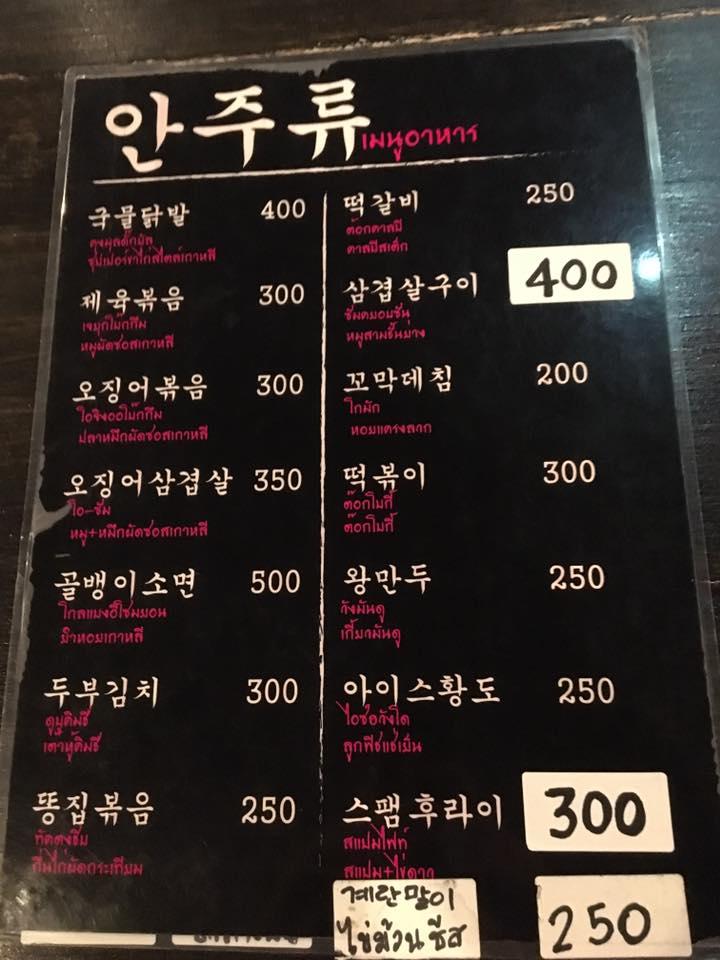 안주류 เมนูอาหาร
국물닭발 400
คุงมุลตั๊กมัล
ซุปเปอร์ขาไก่สไตล์เกาหลี
제육볶음 300
เจมุกโบ๊กกึม
หมูผัดซอสเกาหลี
오징어볶음 300
โอจิงออโบ๊กกึม
ปลาหมึกผัดซอสเกาหลี
오징어삼겹살 350
โอ-ซัม
หมู+หมึกผัดซอสเกาหลี
골뱅이소면 500
โกลแบงอี้โซมมอน
ยำหอมเกาหลี
두부김치 300
ดูบูคิมชี
เต้าหู้คิมชี
똥집볶음 250
ทัคตงชิม
กึ๋นไก่ผัดกระเทียม
떡갈비 250
ต๊อกคาลบี
คาลบีสเต็ก
삼겹살구이 400
ซัมคยอบซัน
หมูสามชั้นย่าง
꼬막데침 200
โกมัก
หอมแครงลวก
떡볶이 300
ต๊อกโบกี้
ต๊อกโบกี้
왕만두 250
วังมันดู
เกี้ยวมันดู
아이스황도 250
ไอซอวังโด
ลูกพีชแช่เย็น
스팸후라이 300
สแปมไฟท์
สแปม+ไข่ดาว
계란말이 250
ไข่ม้วนชีส